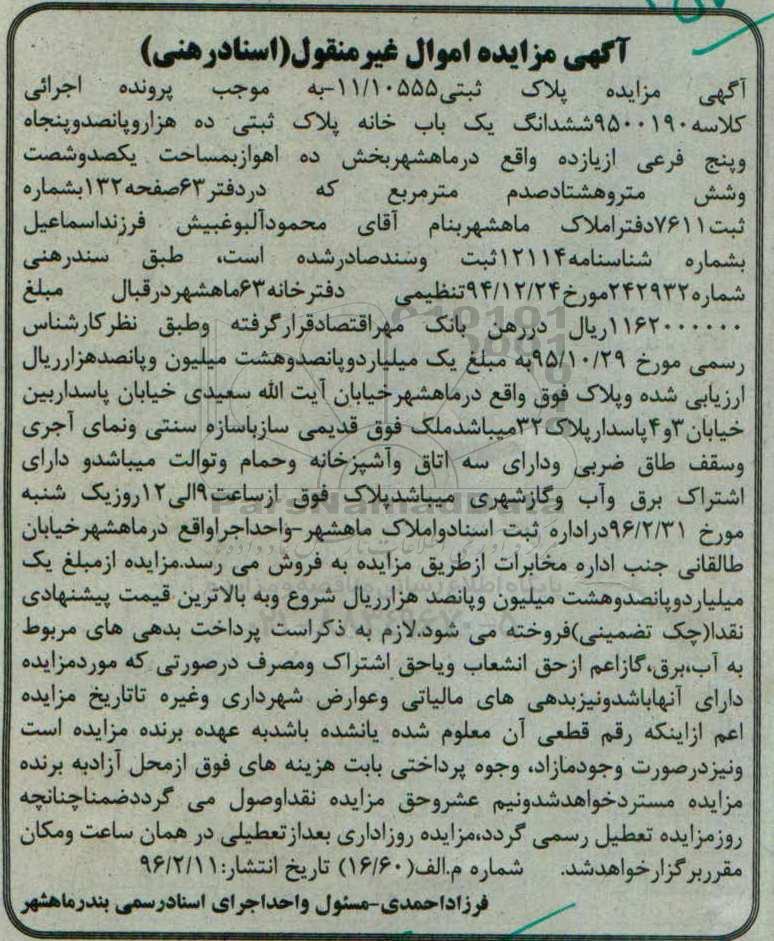 آگهی مزایده اموال غیرمنقول(اسنادرهنی)
آگهی مزایده پلاک ثبتی۱۱/۱۰۵۵۵-به موجب پرونده اجرائی
کلاسه۹۵۰۰۱۹۰ششدانگ یک باب خانه پلاک ثبتی ده هزاروپانصدوپنجاه
وپنج فرعی ازیازده واقع درماهشهربخش ده اهوازبمساحت یکصدوشصت
وشش متروهشتادصدم مترمربع که دردفتر۶۳صفحه۱۳۲بشماره
ثبت۷۶۱۱دفتراملاک ماهشهربنام آقای محمودآلبوغبیش فرزنداسماعیل
بشماره شناسنامه۱۲۱۱۴ثبت وسندصادرشده است، طبق سندرهنی
شماره۲۴۲۹۳۲مورخ۹۴/۱۲/۲۴تنظیمی دفترخانه۶۳ماهشهردرقبال مبلغ
۱۱۶۲۰۰۰۰۰۰ریال دررهن بانک مهراقتصادقرارگرفته وطبق نظرکارشناس
رسمی مورخ ۹۵/۱۰/۲۹به مبلغ یک میلیاردوپانصدوهشت میلیون وپانصدهزارریال
ارزیابی شده وپلاک فوق واقع درماهشهرخیابان آیت الله سعیدی خیابان پاسداربین
خیابان۳و۴پاسدارپلاک۳۲میباشدملک فوق قدیمی سازباسازه سنتی ونمای آجری
وسقف طاق ضربی ودارای سه اتاق وآشپزخانه وحمام وتوالت میباشدو دارای
اشتراک برق وآب وگازشهری میباشدپلاک فوق ازساعت۹الی۱۲روزیک شنبه
مورخ ۹۶/۲/۳۱دراداره ثبت اسنادواملاک ماهشهر-واحداجراواقع درماهشهرخیابان
طالقانی جنب اداره مخابرات ازطریق مزایده به فروش می رسد.مزایده ازمبلغ یک
میلیاردوپانصدوهشت میلیون وپانصد هزارریال شروع وبه بالاترین قیمت پیشنهادی
نقدا(چک تضمینی)فروخته می شود.لازم به ذکراست پرداخت بدهی های مربوط
به آب،برق،گازاعم ازحق انشعاب ویاحق اشتراک ومصرف درصورتی که موردمزایده
دارای آنهاباشدونیزبدهی های مالیاتی وعوارض شهرداری وغیره تاتاریخ مزایده
اعم ازاینکه رقم قطعی آن معلوم شده یانشده باشدبه عهده برنده مزایده است
ونیزدرصورت وجودمازاد، وجوه پرداختی بابت هزینه های فوق ازمحل آزادبه برنده
مزایده مستردخواهدشدونیم عشروحق مزایده نقداوصول می گرددضمناچنانچه
روزمزایده تعطیل رسمی گردد،مزایده روزاداری بعدازتعطیلی در همان ساعت ومکان
مقرربرگزارخواهدشد. شماره م.الف(۱۶/۶۰) تاریخ انتشار:۹۶/۲/۱۱
فرزاداحمدی-مسئول واحداجرای اسنادرسمی بندرماهشهر
ParsNamadData